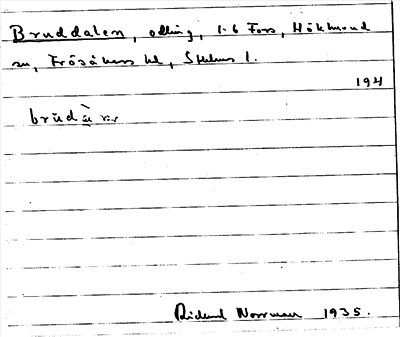 Bruddalen, odling, 1·6 Fors, Hökhuvud
sn, Frösåkers hd, Sthlms l.
194
brùdà
Rickard Norrman 1935.